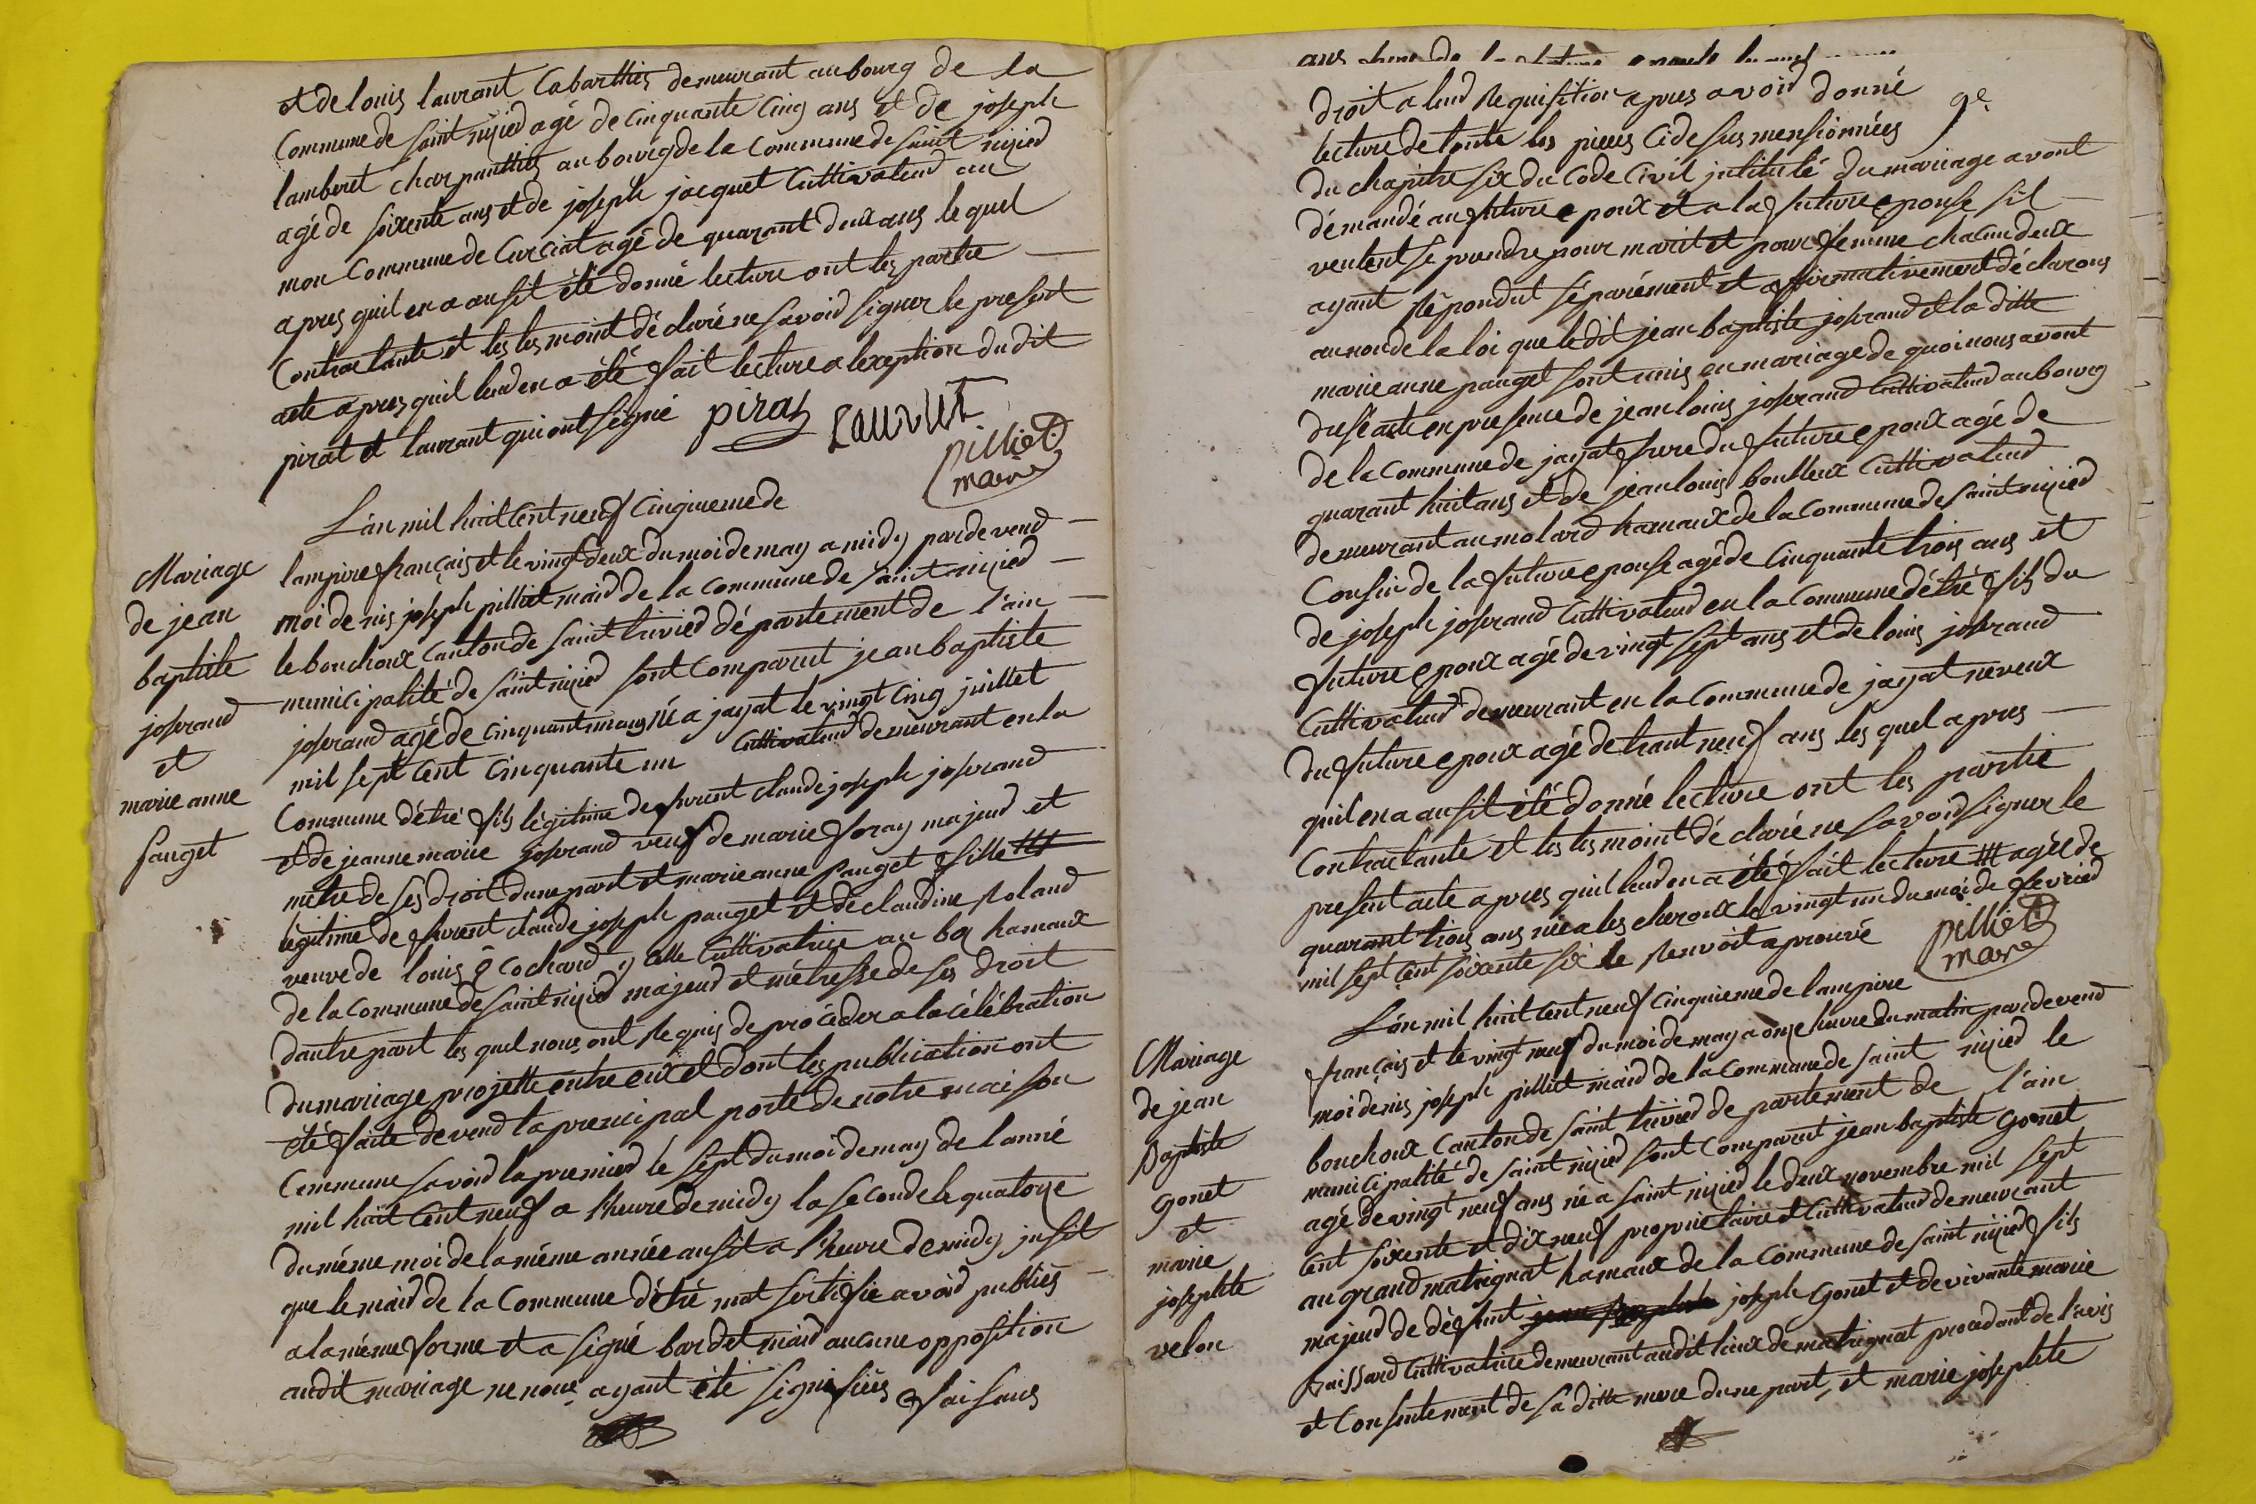 et de louis laurant Cabarthier demeurant au bourg de la
Commune de saint nizied agé de cinquante cinq ans et de joseph
lamberet charpanttier au bourg de la Commune de saint nizied
agé de soixente ans et de joseph jacquet Culttivateud au
mon Commune de Curciat agé de quarant deux ans le quel
apres quil en a ausit été donné lecture ont les partie
Contractante et les tesmoint dé claré ne savoid signer le present
acte apres quil leud en a été fait lecture a lexeption du dit
pirat et laurant qui ont signé pirat Laurent
pilliet
maire
L'an mil huit Cent neuf Cinquieme de
Mariage
de jean
baptiste
joserand
et
marie anne
pauget
lampire français et le vingt deux du moi de may a midy pardevend
moi denis joseph pilliet maid de la Commune de saint nizied
le bouchoux Canton de saint trivied département de l'ain
municipalité de saint nizied sont Comparut jean baptiste
joserand agé de cinquant né a jayat le vingt cinq juillet
mil sept Cent Cinquante un Culttivateud demeurant en la
Commune d'étré fils légitime de furent claude joseph joserand
et de jeanne marie joserand veuf de marie foray majeud et
mêtre de ses droit dune part et marie anne pauget fille
légitime de furent claude joseph pauget et de claudine Roland
veuve de louis Cochard, elle Culttivatrice au hamaux
de la Commune de saint nizied majeud et métresse de ses droit
dautre part les quel nous ont Requis de procéder a la célébration
du mariage projetté entre eux et dont les publication ont
été faite devend la prencipal porte de notre maison
Commune savoid la premied le sept du moi de may de lanné
mil huit Cent neuf a l'heure de midy la seconde le quatorze
du méme moi de la méme année ausit a l'heure de midy jusit
que le maid de la Commune d'étré mat sertifie avoid publiés
a la méme forme et a signé bardet maid aucune opposition
audit mariage ne nous ayant été signifiées faisans
droit a leud Requisition apres avoid donné
9e.
lecture de toute les pieces Cidesus mensionnées
du chapitre six du Code Civil jntitulé du mariage avont
démandé au future epoux et a la future epouse sil
veulent se prendre pour marit et pour femme chacun deux
ayant Répondut séparément et affirmativement déclarons
au non de la loi que ledit jean baptiste joserand et la ditte
marie anne pauget sont unis en mariage de quoi nous avont
dusé acte en presence de jean louis joserand Culttivateud au bourg
de la Commune de jayat frere du future epoux agé de
quarant huit ans et de jean louis boutteux Culttivateud
demeurant au molard hamaux de la Commune de saint nizied
Cousin de la future epouse agé de Cinquante trois ans et
de joseph joserand Culttivateud en la Commune d'étré fils du
future epoux agé de vingt sept ans et de louis joserand
Culttivateud demeurant en la Commune de jayat neveux
du future epoux agé de trant neuf ans les quel apres
quil en a ausit été donné lecture ont les partie
Contractante et les tesmoint dé claré ne savoid signer le
present acte apres quil leud en a été fait lecture agée de
quarant trois ans née a les cheroux le vingt un du moi de fevried
mil sept Cent soixante six le Renvoit aprouvé
pilliet
maire
L'an mil huit Cent neuf Cinquieme de lampire
Mariage
de jean
Baptiste
gonet
et
marie
josephte
velon
français et le vingt neuf du moi de may a onze heure du matin pardevend
moi denis joseph pilliet maid de la Commune de saint nizied le
bouchoux Canton de saint trivied departement de l'ain
municipalité de saint nizied sont Comparut jean baptiste gonet
agé de vingt neuf ans né a saint nizied le deux novembre mil sept
Cent soixente et dix neuf proprietaire et Culttivateud demeurant
au grand matrignat hamaux de la Commune de saint nizied fils
majeud de défunt joseph gonet et de vivante marie
Culttivatrice demeurant audit lieux de matrignat procedant de l'avis
et Consentement de sa ditte mere dune part, et marie josephte